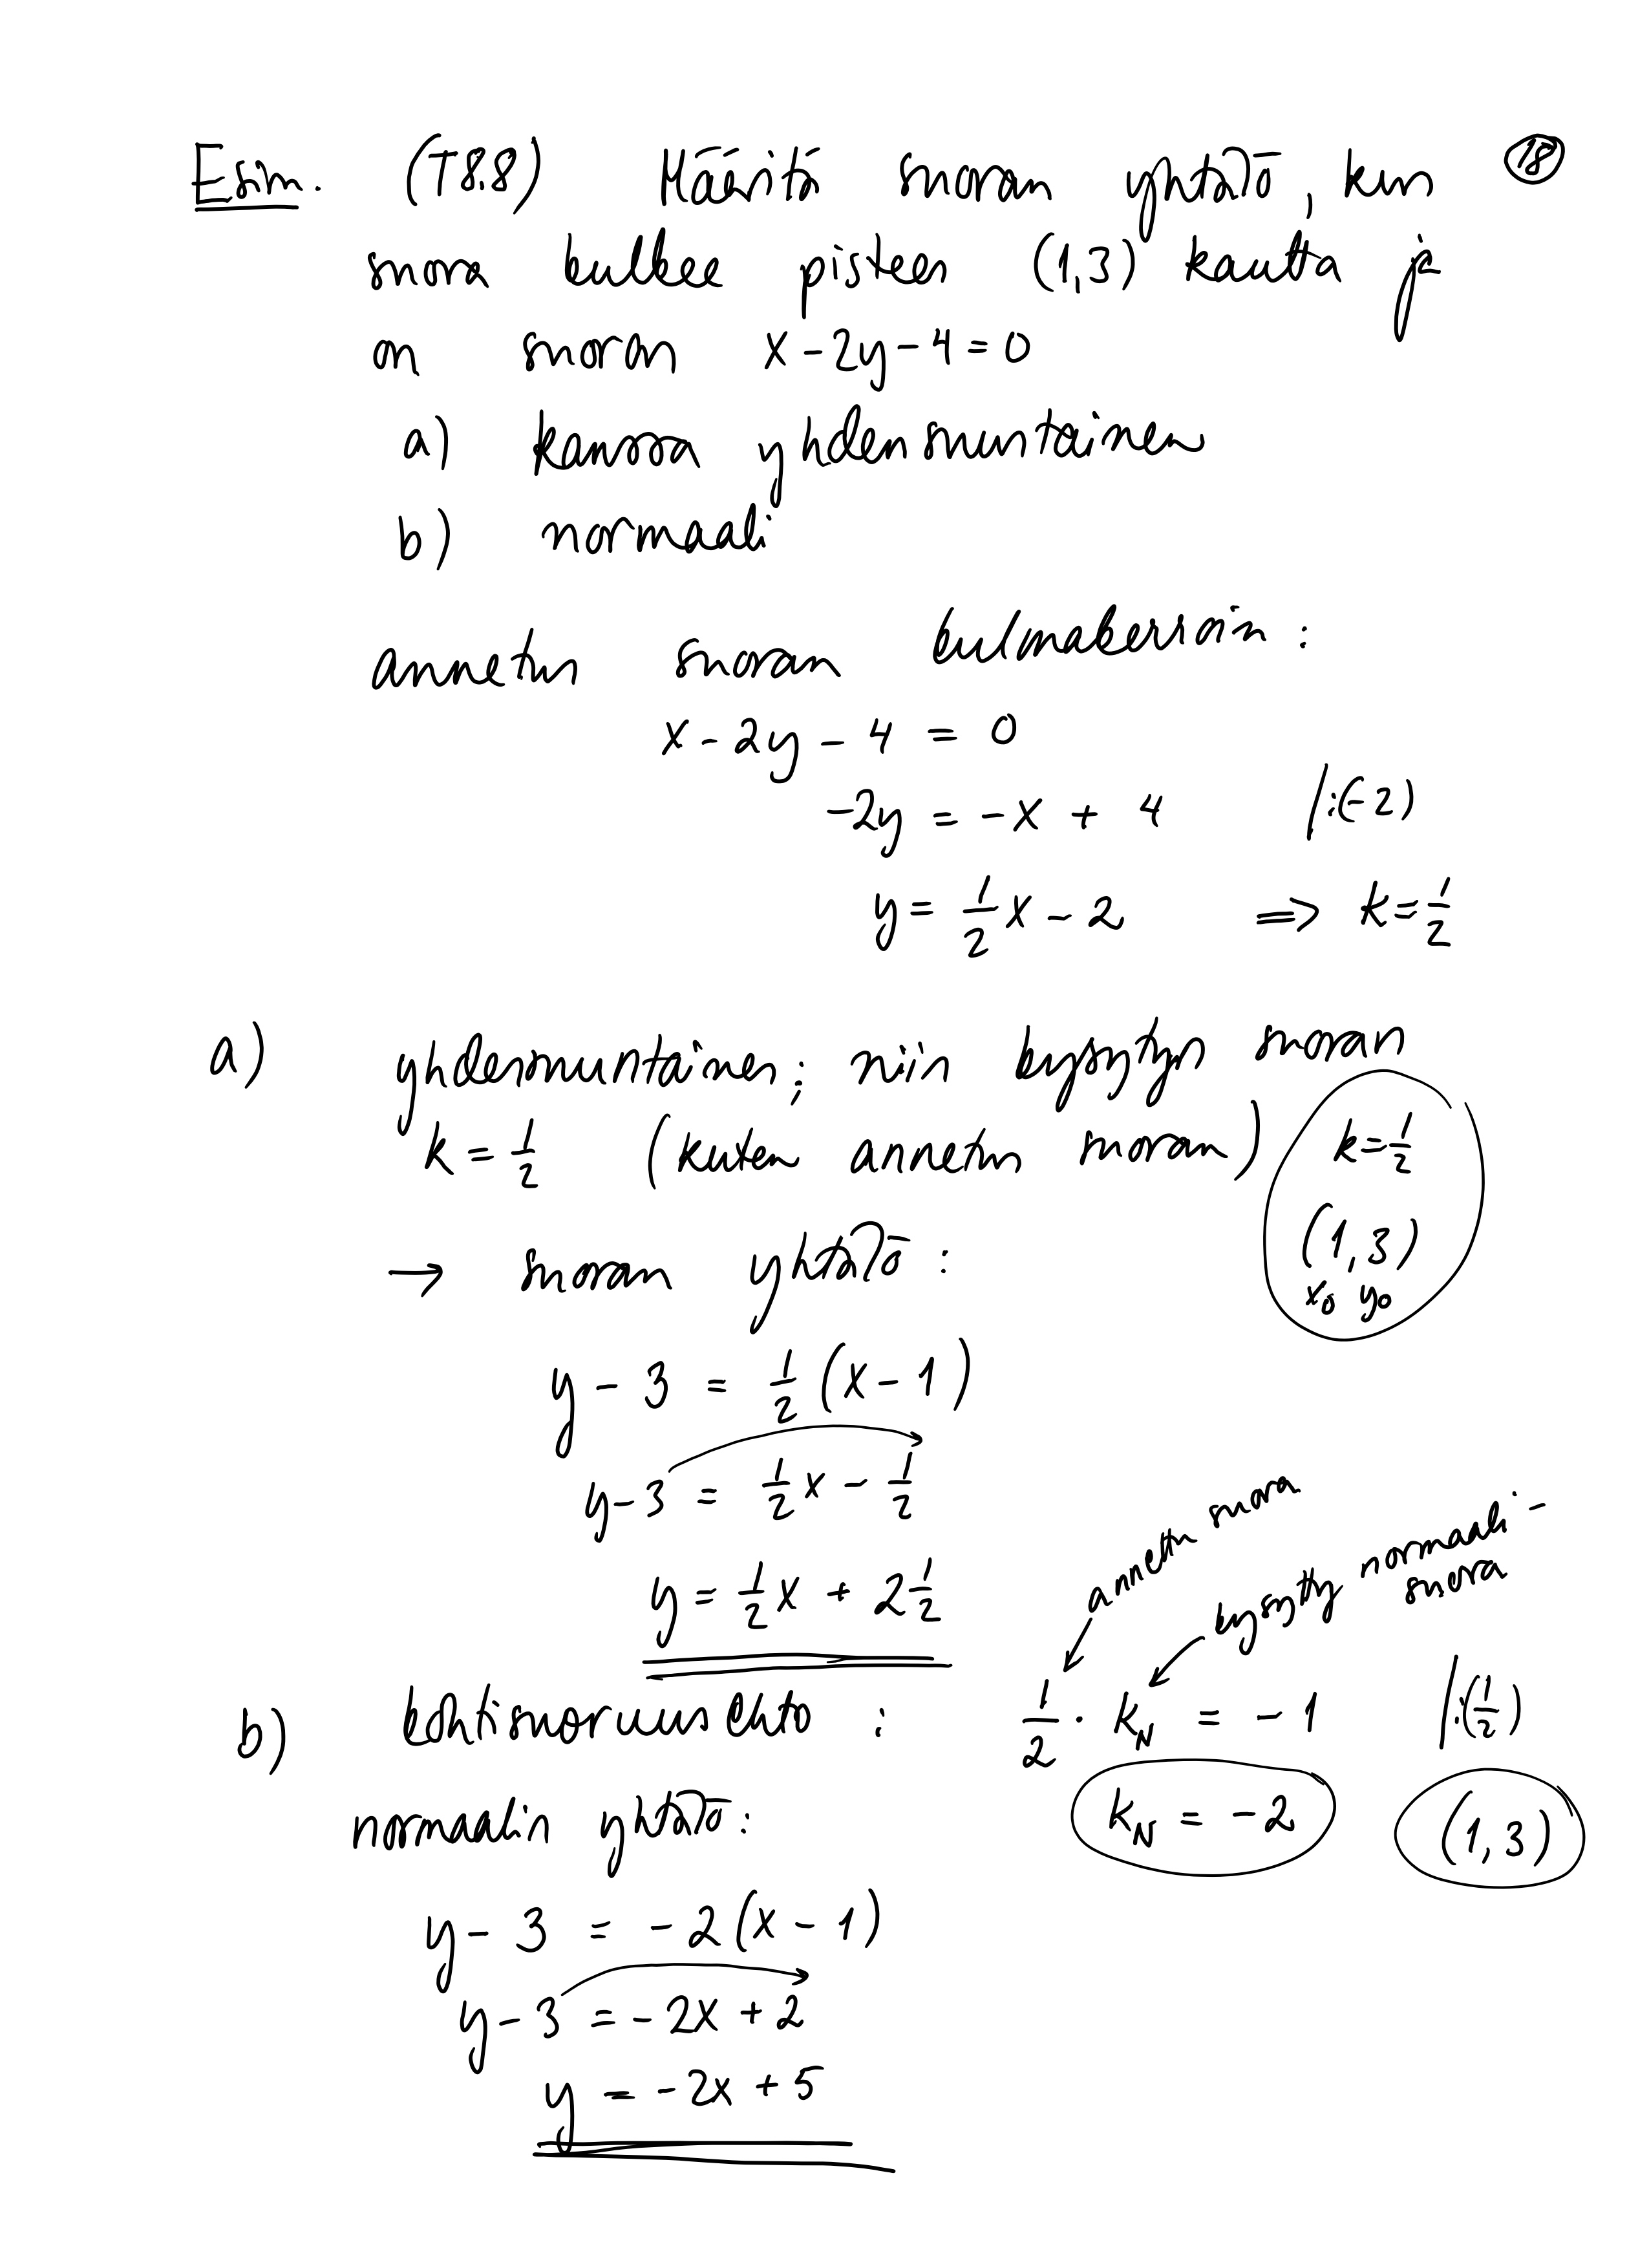 Esim. (T8.8) Määritä suoran yhtälö, kun 18
suora kulkee pisteen (1,3) kautta ja
on suoran x - 2y - 4 = 0
a) kanssa yhdensuuntainen
b) normaali
annetun suoran kulmakerroin :
x - 2y - 4 = 0
-2y = -x + 4 |:(-2)
y = 1/2 x - 2 ⇒ k = 1/2
a) yhdensuuntainen; niin kysytyn suoran
k = 1/2 (kuten annetun suoran) k = 1/2
(1,3)
x₀ y₀
→ suoran yhtälö :
y - 3 = 1/2 (x - 1)
y - 3 = 1/2 x - 1/2
y = 1/2 x + 2 1/2
annettu suora
kysytty normaali-
suora
b) kohtisuoruusehto : 1/2 · k_N = -1 |:(1/2)
k_N = -2 (1,3)
normaalin yhtälö:
y - 3 = -2 (x - 1)
y - 3 = -2x + 2
y = -2x + 5